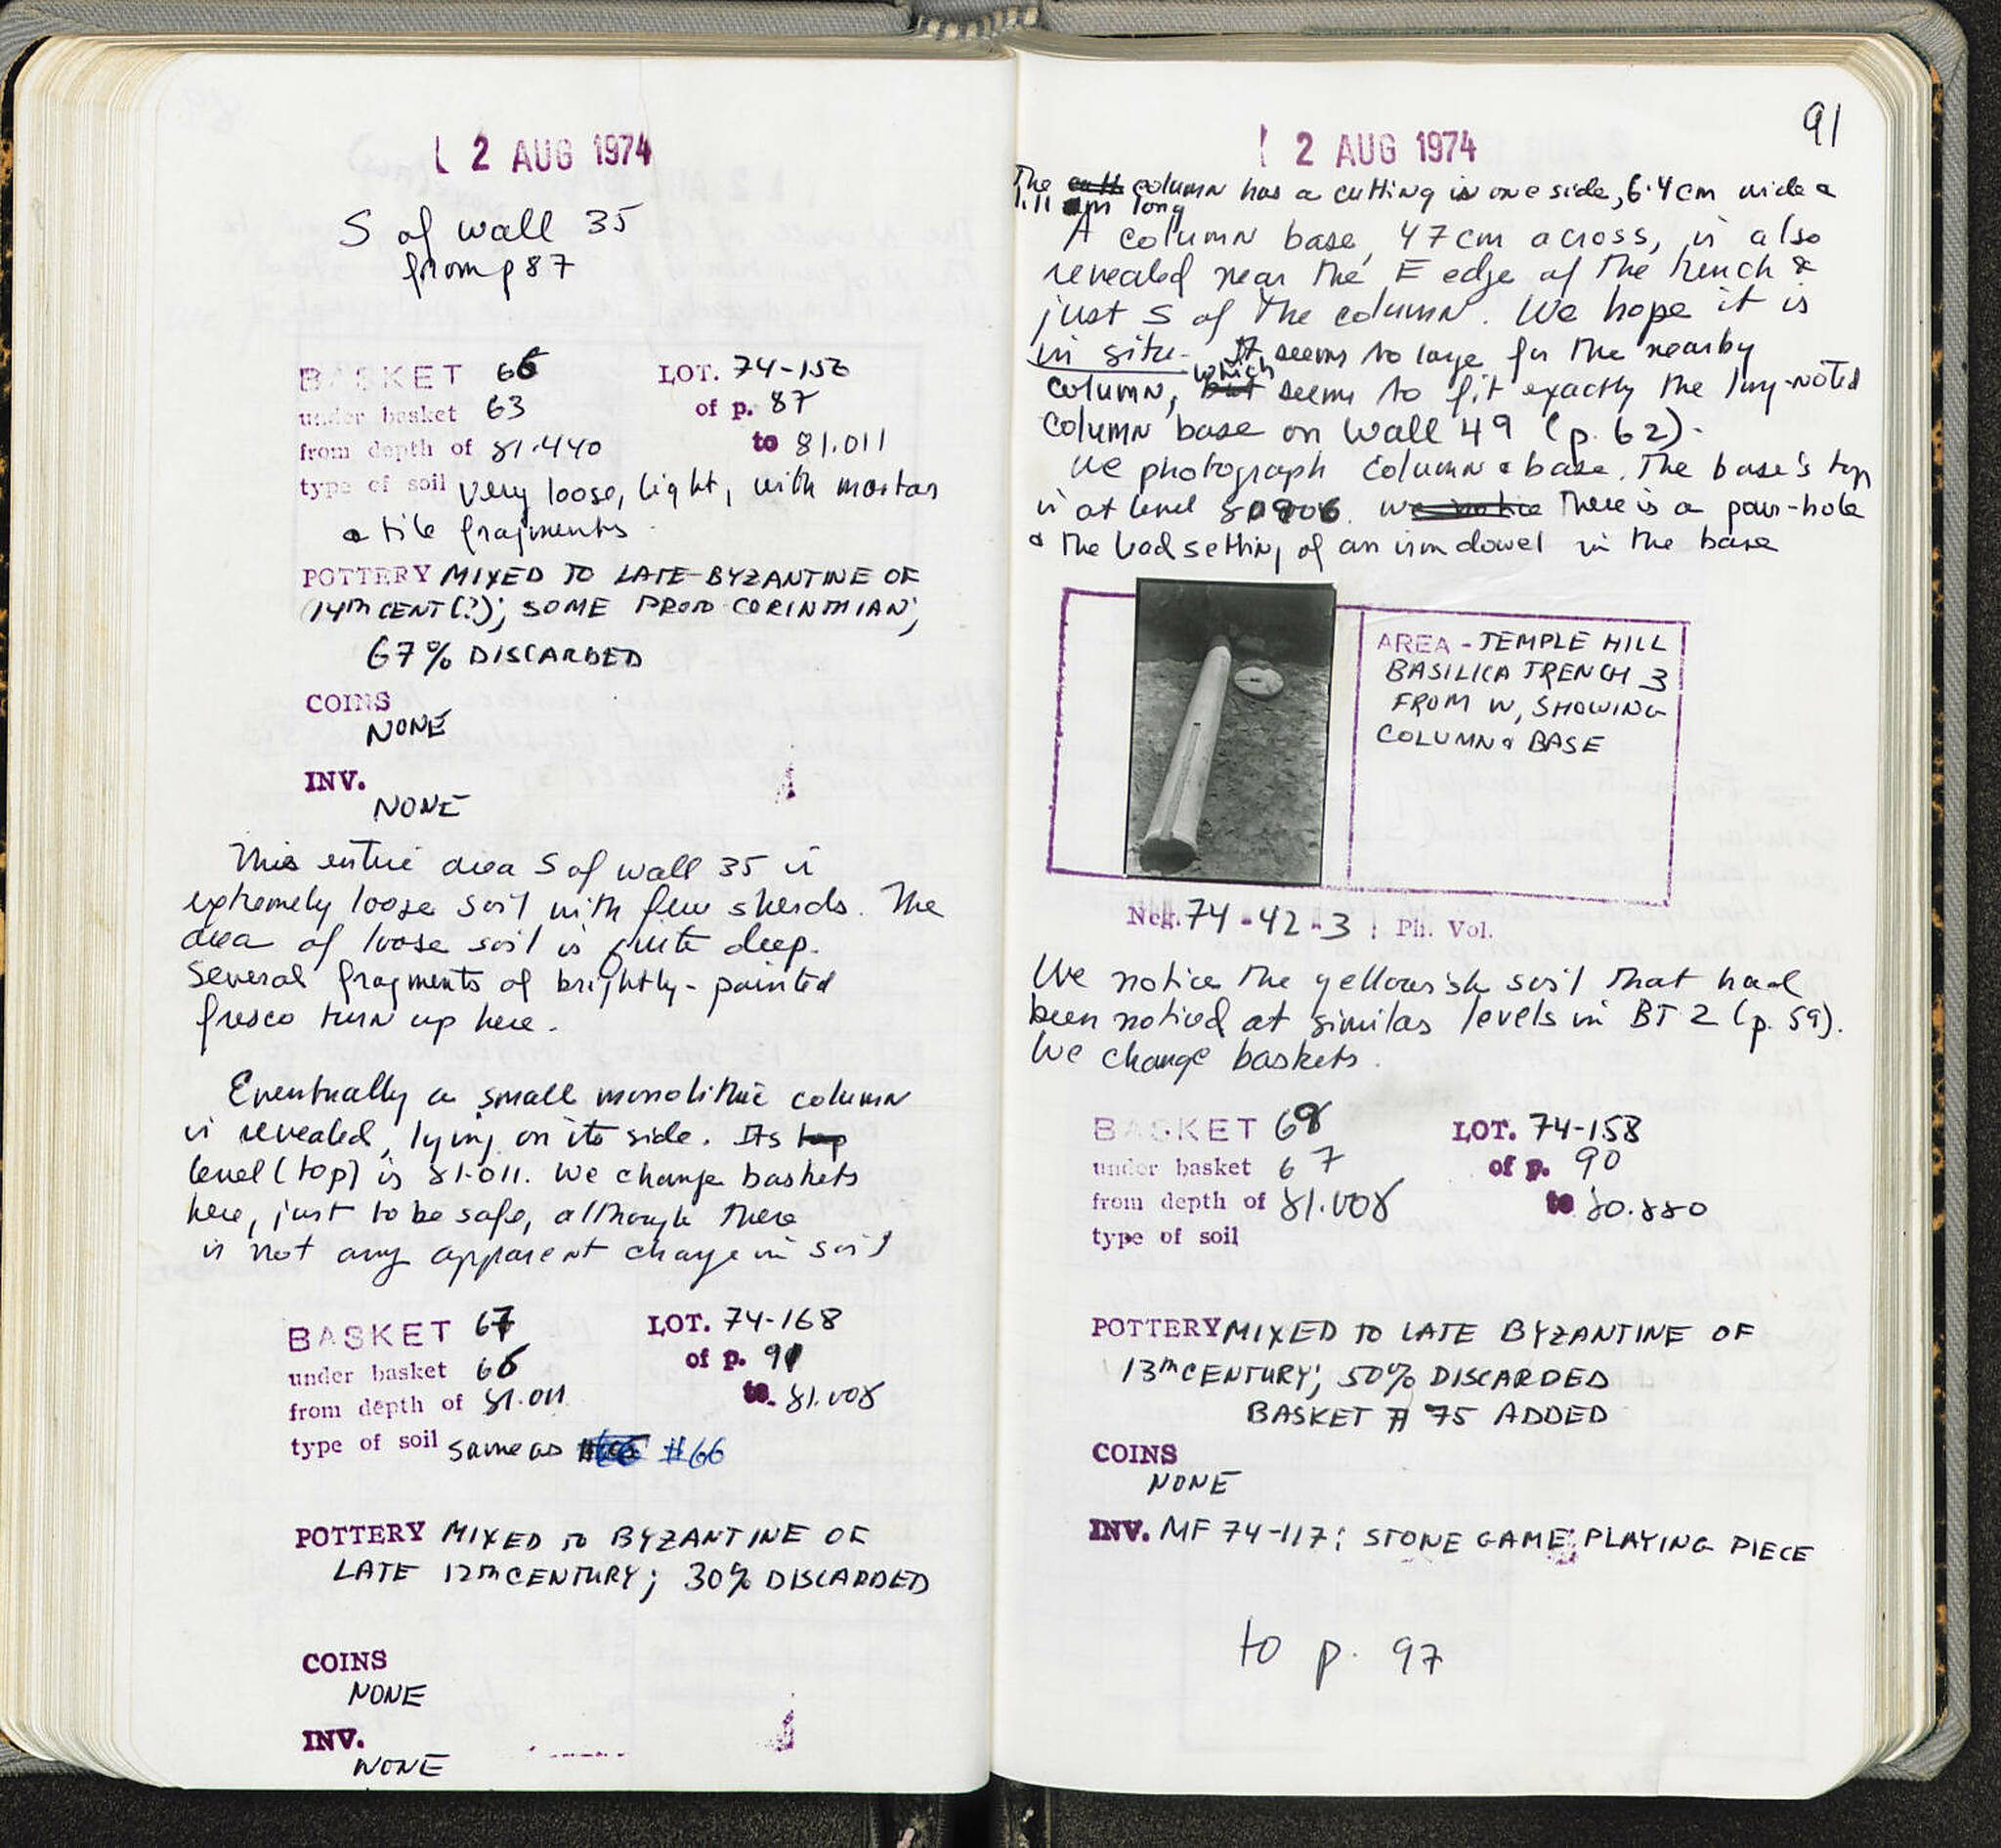 2 AUG 1974
S of wall 35
from p 87
BASKET 66 LOT. 74-158
under basket 63 of p. 87
from depth of 81.440 to 81.011
type of soil very loose, light, with mortar
& tile fragments
POTTERY MIXED TO LATE BYZANTINE OF
14TH CENT (?); SOME PROTO CORINTHIAN;
67% DISCARDED
COINS
NONE
INV.
NONE
This entire area S of wall 35 is
extremely loose soil with few sherds. The
area of loose soil is quite deep.
Several fragments of brightly-painted
fresco turn up here.
Eventually a small monolithic column
is revealed, lying on its side. Its top
level (top) is 81.011. We change baskets
here, just to be safe, although there
is not any apparent change in soil
BASKET 67 LOT. 74-168
under basket 66 of p. 91
from depth of 81.011 to 81.008
type of soil same as #66
POTTERY MIXED TO BYZANTINE OF
LATE 12TH CENTURY; 30% DISCARDED
COINS
NONE
INV.
NONE
91
2 AUG 1974
The column has a cutting in one side, 6.4cm wide &
1.11 m long
A column base, 47cm across, is also
revealed near the E edge of the trench &
just S of the column. We hope it is
in situ. It seems to large for the nearby
column, which seems to fit exactly the tiny-noted
column base on wall 49 (p. 62).
We photograph column & base. The base's top
is at level There is a pour-hole
& the lead setting of an iron dowel in the base
AREA - TEMPLE HILL
BASILICA TRENCH 3
FROM W, SHOWING
COLUMN & BASE
Neg. 74-42-3 Ph. Vol.
We notice the yellowish soil that had
been noticed at similar levels in BT 2 (p. 59).
We change baskets.
BASKET 68 LOT. 74-158
under basket 67 of p. 90
from depth of 81.008 to 80.880
type of soil
POTTERY MIXED TO LATE BYZANTINE OF
13TH CENTURY; 50% DISCARDED
BASKET # 75 ADDED
COINS
NONE
INV. MF 74-117: STONE GAME PLAYING PIECE
to p. 97